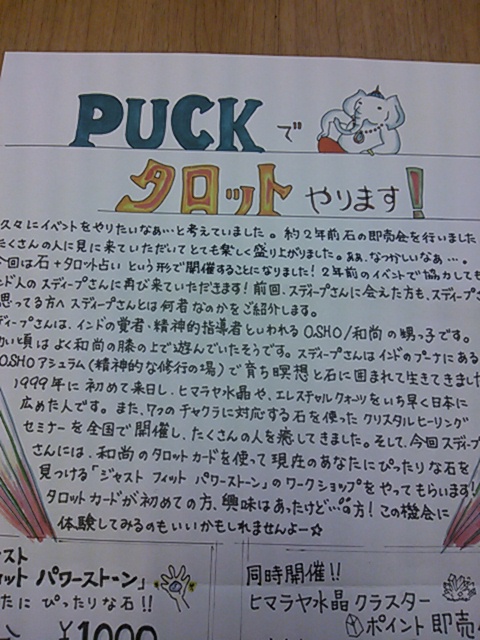 PUCKで
タロットやります!
久々にイベントをやりたいなぁ…と考えていました。約2年前石の即売会を行いました
たくさんの人に見に来ていただいてとても楽しく盛り上がりました。あぁ、なつかしいなぁ…。
今回は石+タロット占いという形で開催することになりました!2年前のイベントで協力しても
ンド人のスディープさんに再び来ていただきます!前回、スディープさんに会えた方も、スディープさ
思ってる方へスディープさんとは何者なのかをご紹介します。
ディープさんは、インドの覚者・精神的指導者といわれるOSHO/和尚の甥っ子です。
幼い頃はよく和尚の膝の上で遊んでいたそうです。スディープさんはインドのプーナにある
OSHOアシュラム(精神的な修行の場)で育ち瞑想と石に囲まれて生きてきました
1999年に初めて来日し、ヒマラヤ水晶や、エレスチャルクォーツをいち早く日本に
広めた人です。また、7つのチャクラに対応する石を使ったクリスタルヒーリング
セミナーを全国で開催し、たくさんの人を癒してきました。そして、今回スディープ
さんには、和尚のタロットカードを使って現在のあなたにぴったりな石を
見つける「ジャストフィットパワーストーン」のワークショップをやってもらいます!
タロットカードが初めての方、興味はあったけど…の方!この機会に
体験してみるのもいいかもしれませんよー☆
スト
ィット パワーストーン」
たに ぴったりな石!!
¥1000
同時開催!!
ヒマラヤ水晶クラスター
ポイント即売